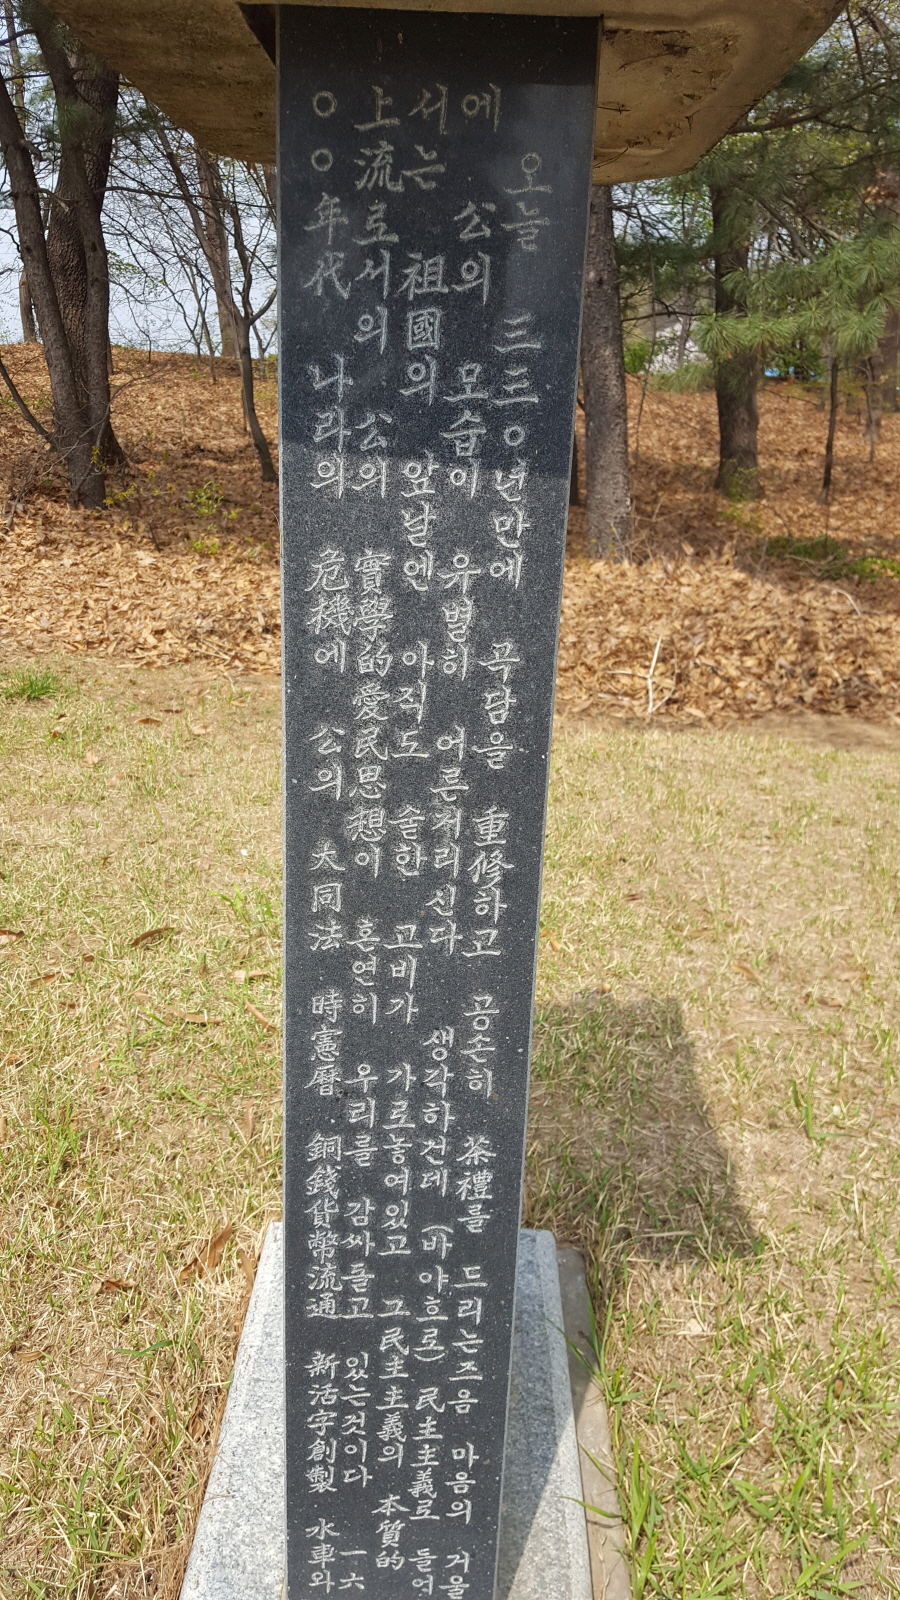 오늘 三三○년만에 곡담을 重修하고 공손히 茶禮를 드리는즈음 마음의 거울
에 公의 모습이 유별히 어른거리신다 생각하건데 (바야흐로) 民主主義로 들어
서는 祖國의 앞날엔 아직도 숱한 고비가 가로놓여있고 그民主主義의 本質的
上流로서의 公의 實學的愛民思想이 혼연히 우리를 감싸들고 있는것이다 一六
○○年代 나라의 危機에 公의 大同法 時憲曆 銅錢貨幣流通 新活字創製 水車와